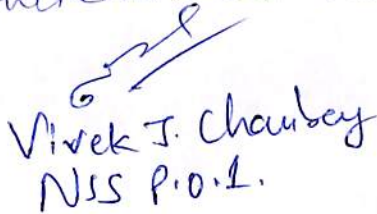 Vivek J. Chaubey
NSS P.O.1.